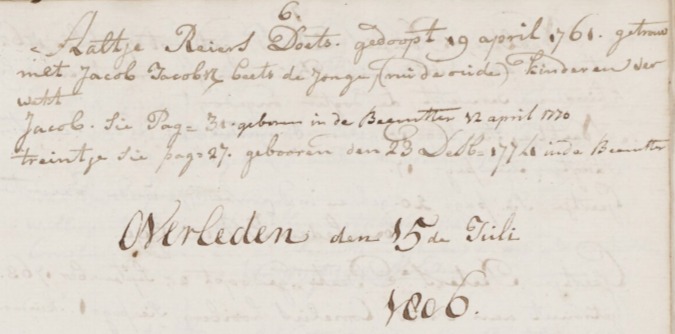 6.
Aaltje Reiers Doets. gedoopt 19 april 1761. getrouw
met Jacob Jacobsz beets de Jonge (nu de oude) kinderen ver
wekt
Jacob. Sie Pag= 31. geboren in de Beemster 12 april 1770
treintje Sie pag=27. gebooren den 23 1774 in de Beemster
Overleden den 15 de Juli
1806.